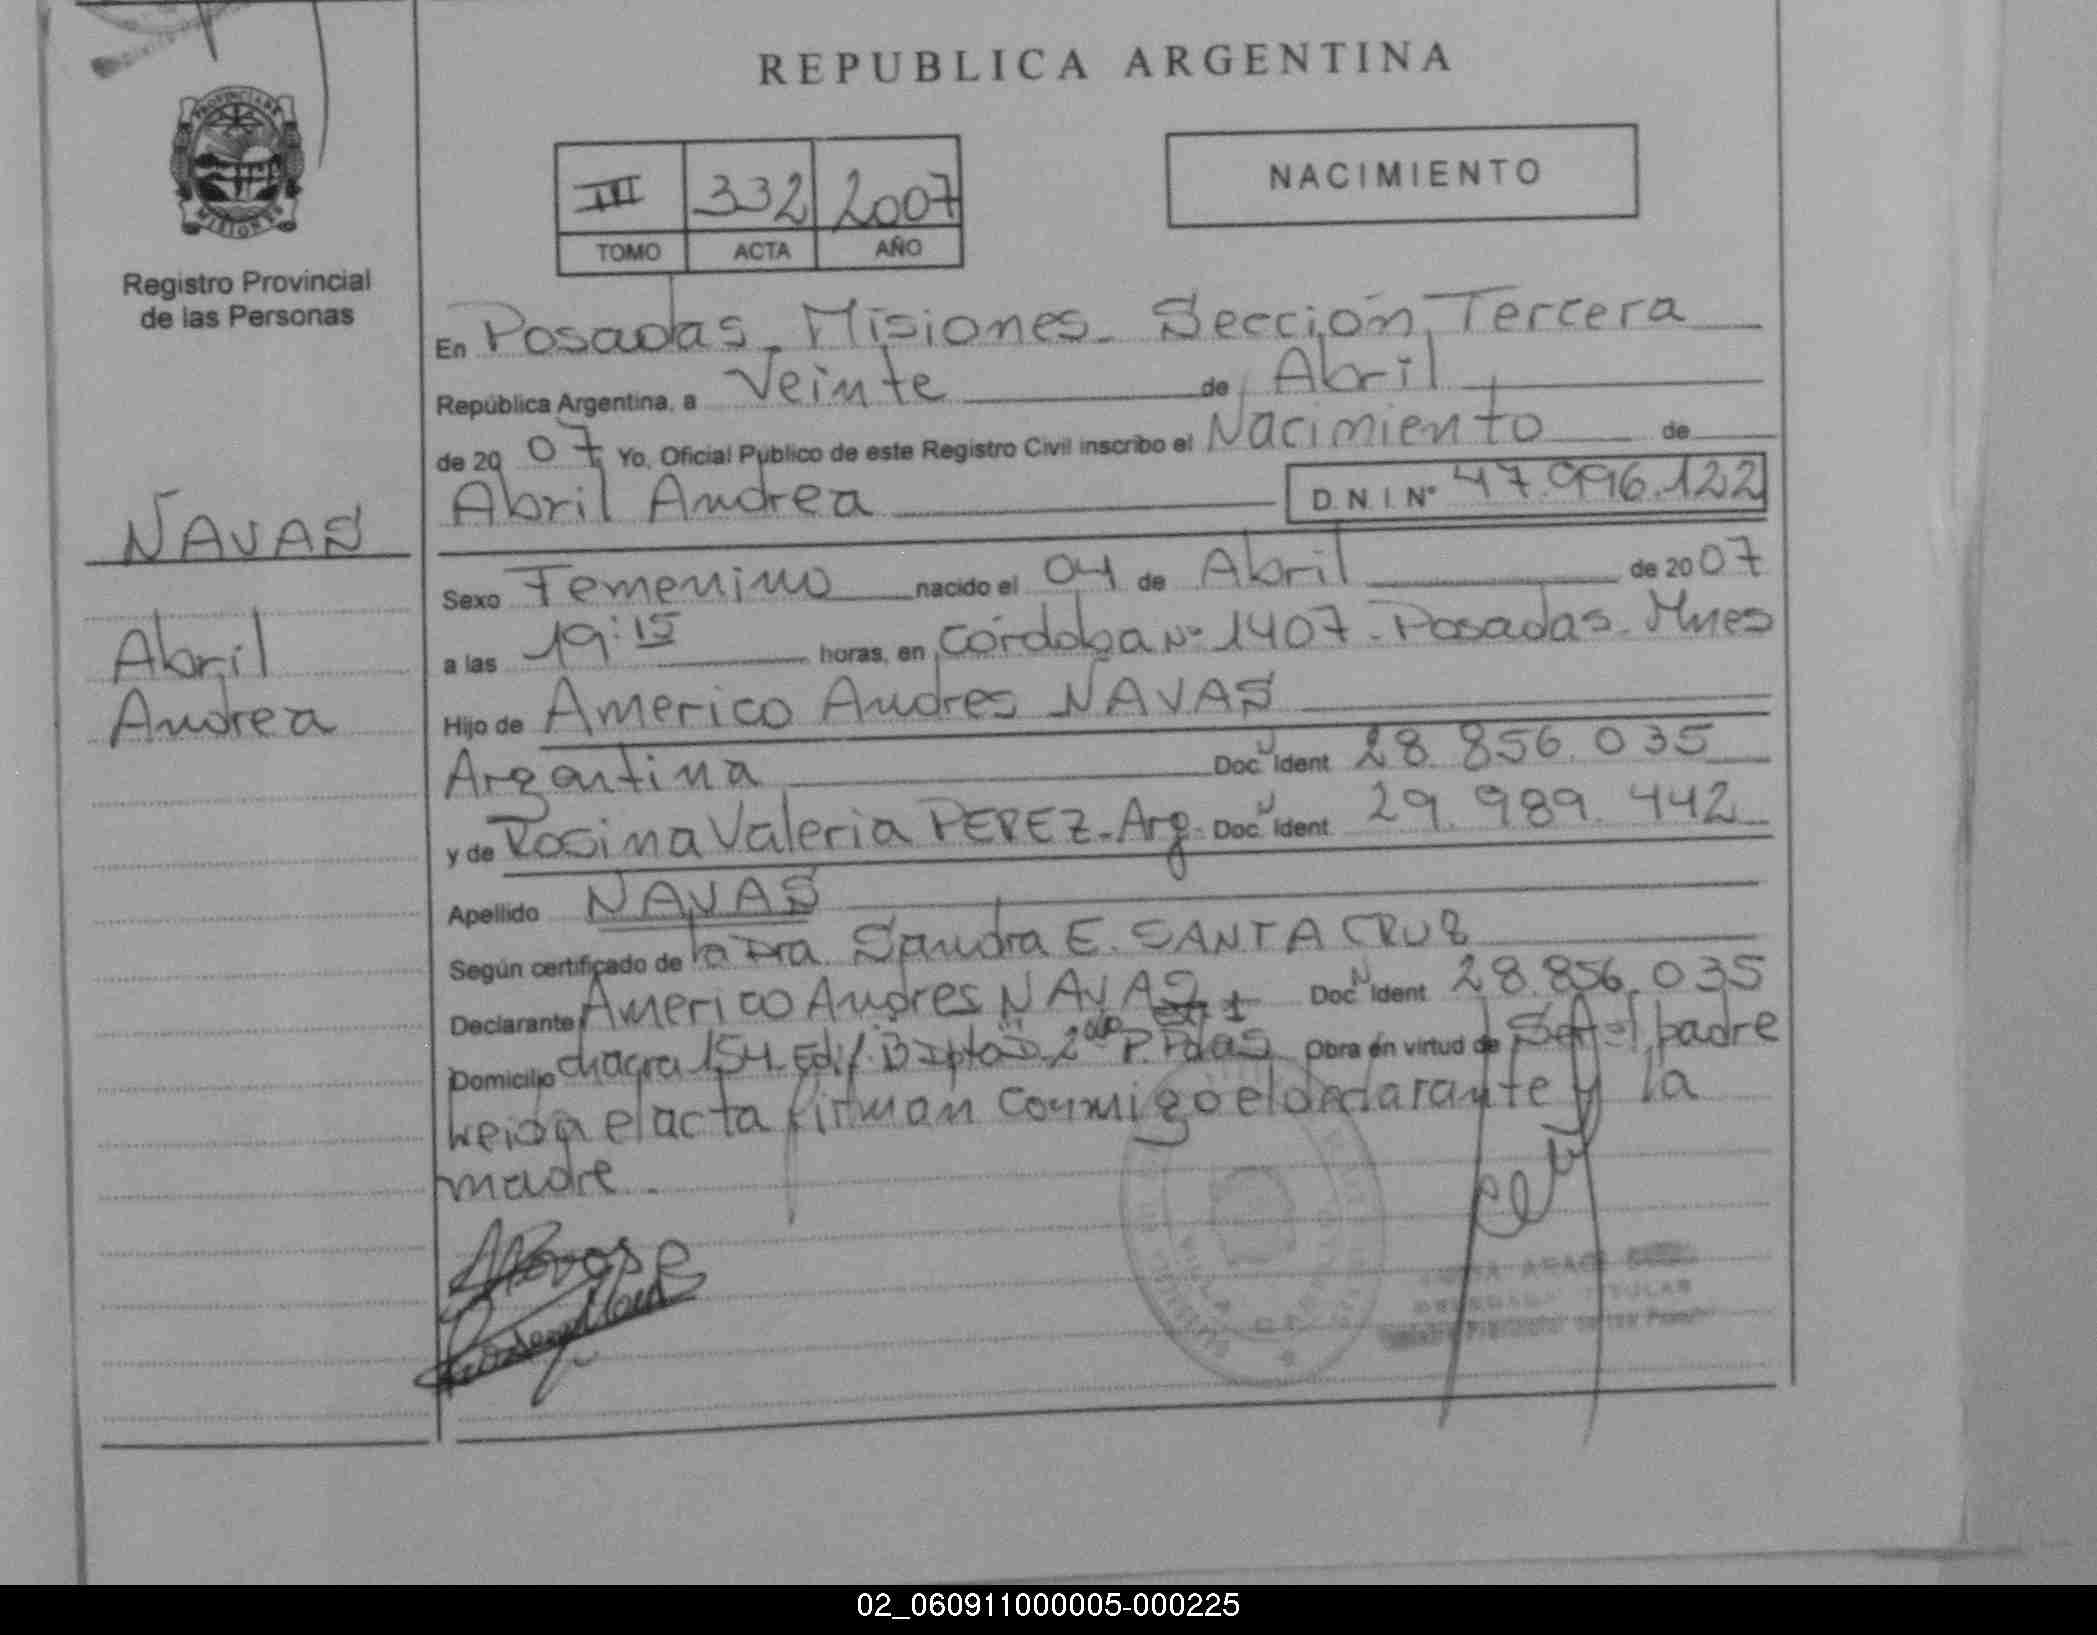 REPUBLICA ARGENTINA
PROVINCIA DE
MISIONES
Registro Provincial
de las Personas
III 332 2007
TOMO ACTA AÑO
NACIMIENTO
NAVAS
Abril
Andrea
En Posadas Misiones Sección Tercera
República Argentina, a Veinte de Abril
de 20 07 Yo, Oficial Público de este Registro Civil inscribo el Nacimiento de
Abril Andrea D.N.I. Nº 47.996.122
Sexo Femenino nacido el 04 de Abril de 20 07
a las 19:15 horas, en Córdoba Nº 1407 - Posadas - Mnes
Hijo de Americo Andres NAVAS
Argentina Doc Ident 28.856.035
y de Rosina Valeria PEREZ - Arg. Doc Ident 29.989.442
Apellido NAVAS
Según certificado de la Dra. Sandra E. SANTA CRUZ
Declarante Americo Andres NAVAS Doc Ident 28.856.035
Domicilio chacra 154 Edif. B Dpto 2 P. Pdas Obra en virtud de Ser el padre
Leida el acta firman conmigo el declarante y la
madre.
02_060911000005-000225